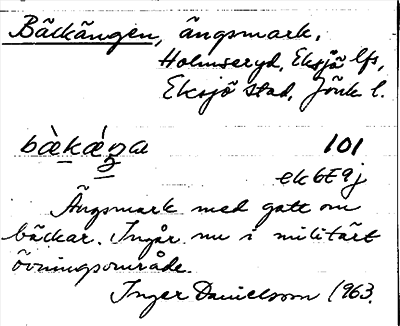 Bäckängen, ängsmark,
Holmseryd, Eksjö lfs,
Eksjö stad, Jönk l.
bæ̀kǽŋa 101
ek 6E9j
Ängsmark med gott om
bäckar. Ingår nu i militärt
övningsområde.
Inger Danielsson 1963.